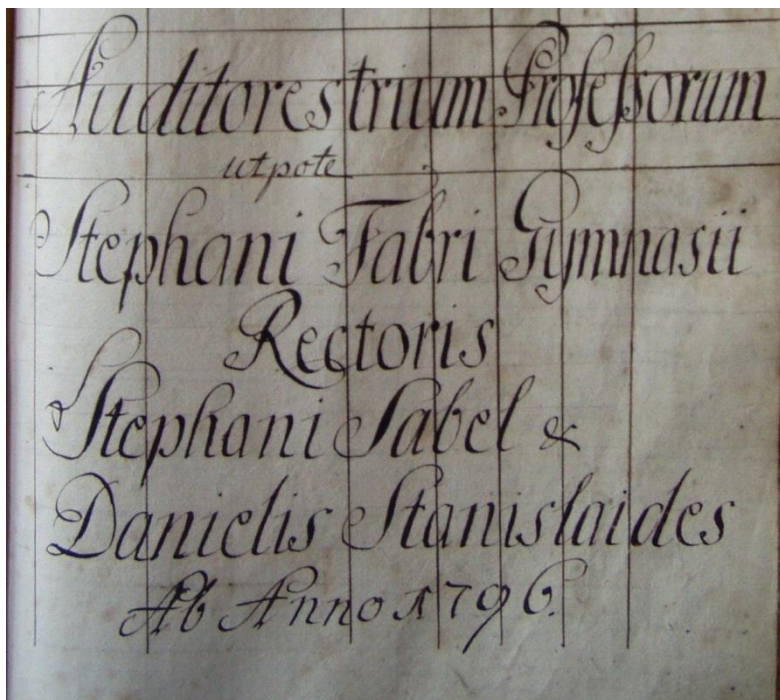 Auditores trium Profeſsorum
utpote
Stephani Fabri Gymnasii
Rectoris
Stephani Sabel &
Danielis Stanislaides
Ab Anno 1796.